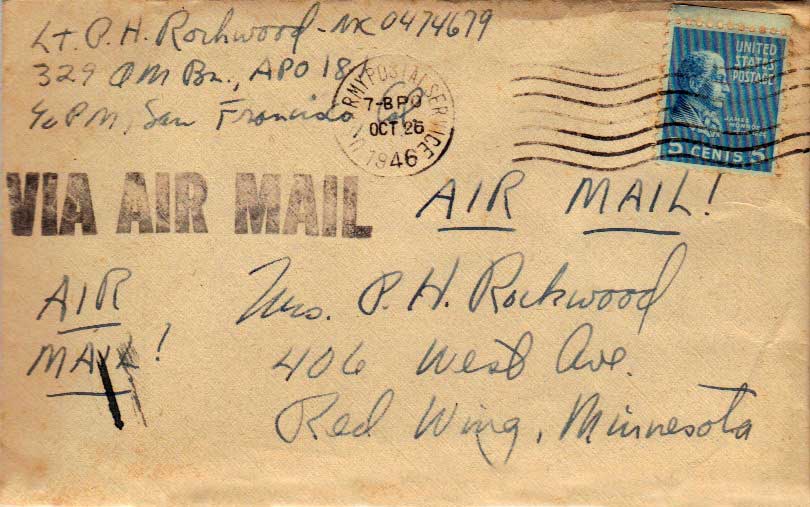 Lt. P. H. Rockwood - MC 0474679
329 QM Bn., APO 18
c/o PM, San Francisco Cal
ARMY POSTAL SERVICE
7-BPO
OCT 26
1946
UNITED
STATES
POSTAGE
JAMES
MONROE
5 CENTS 5
VIA AIR MAIL
AIR MAIL!
AIR
MAIL!
Mrs. P. H. Rockwood
406 West Ave.
Red Wing, Minnesota